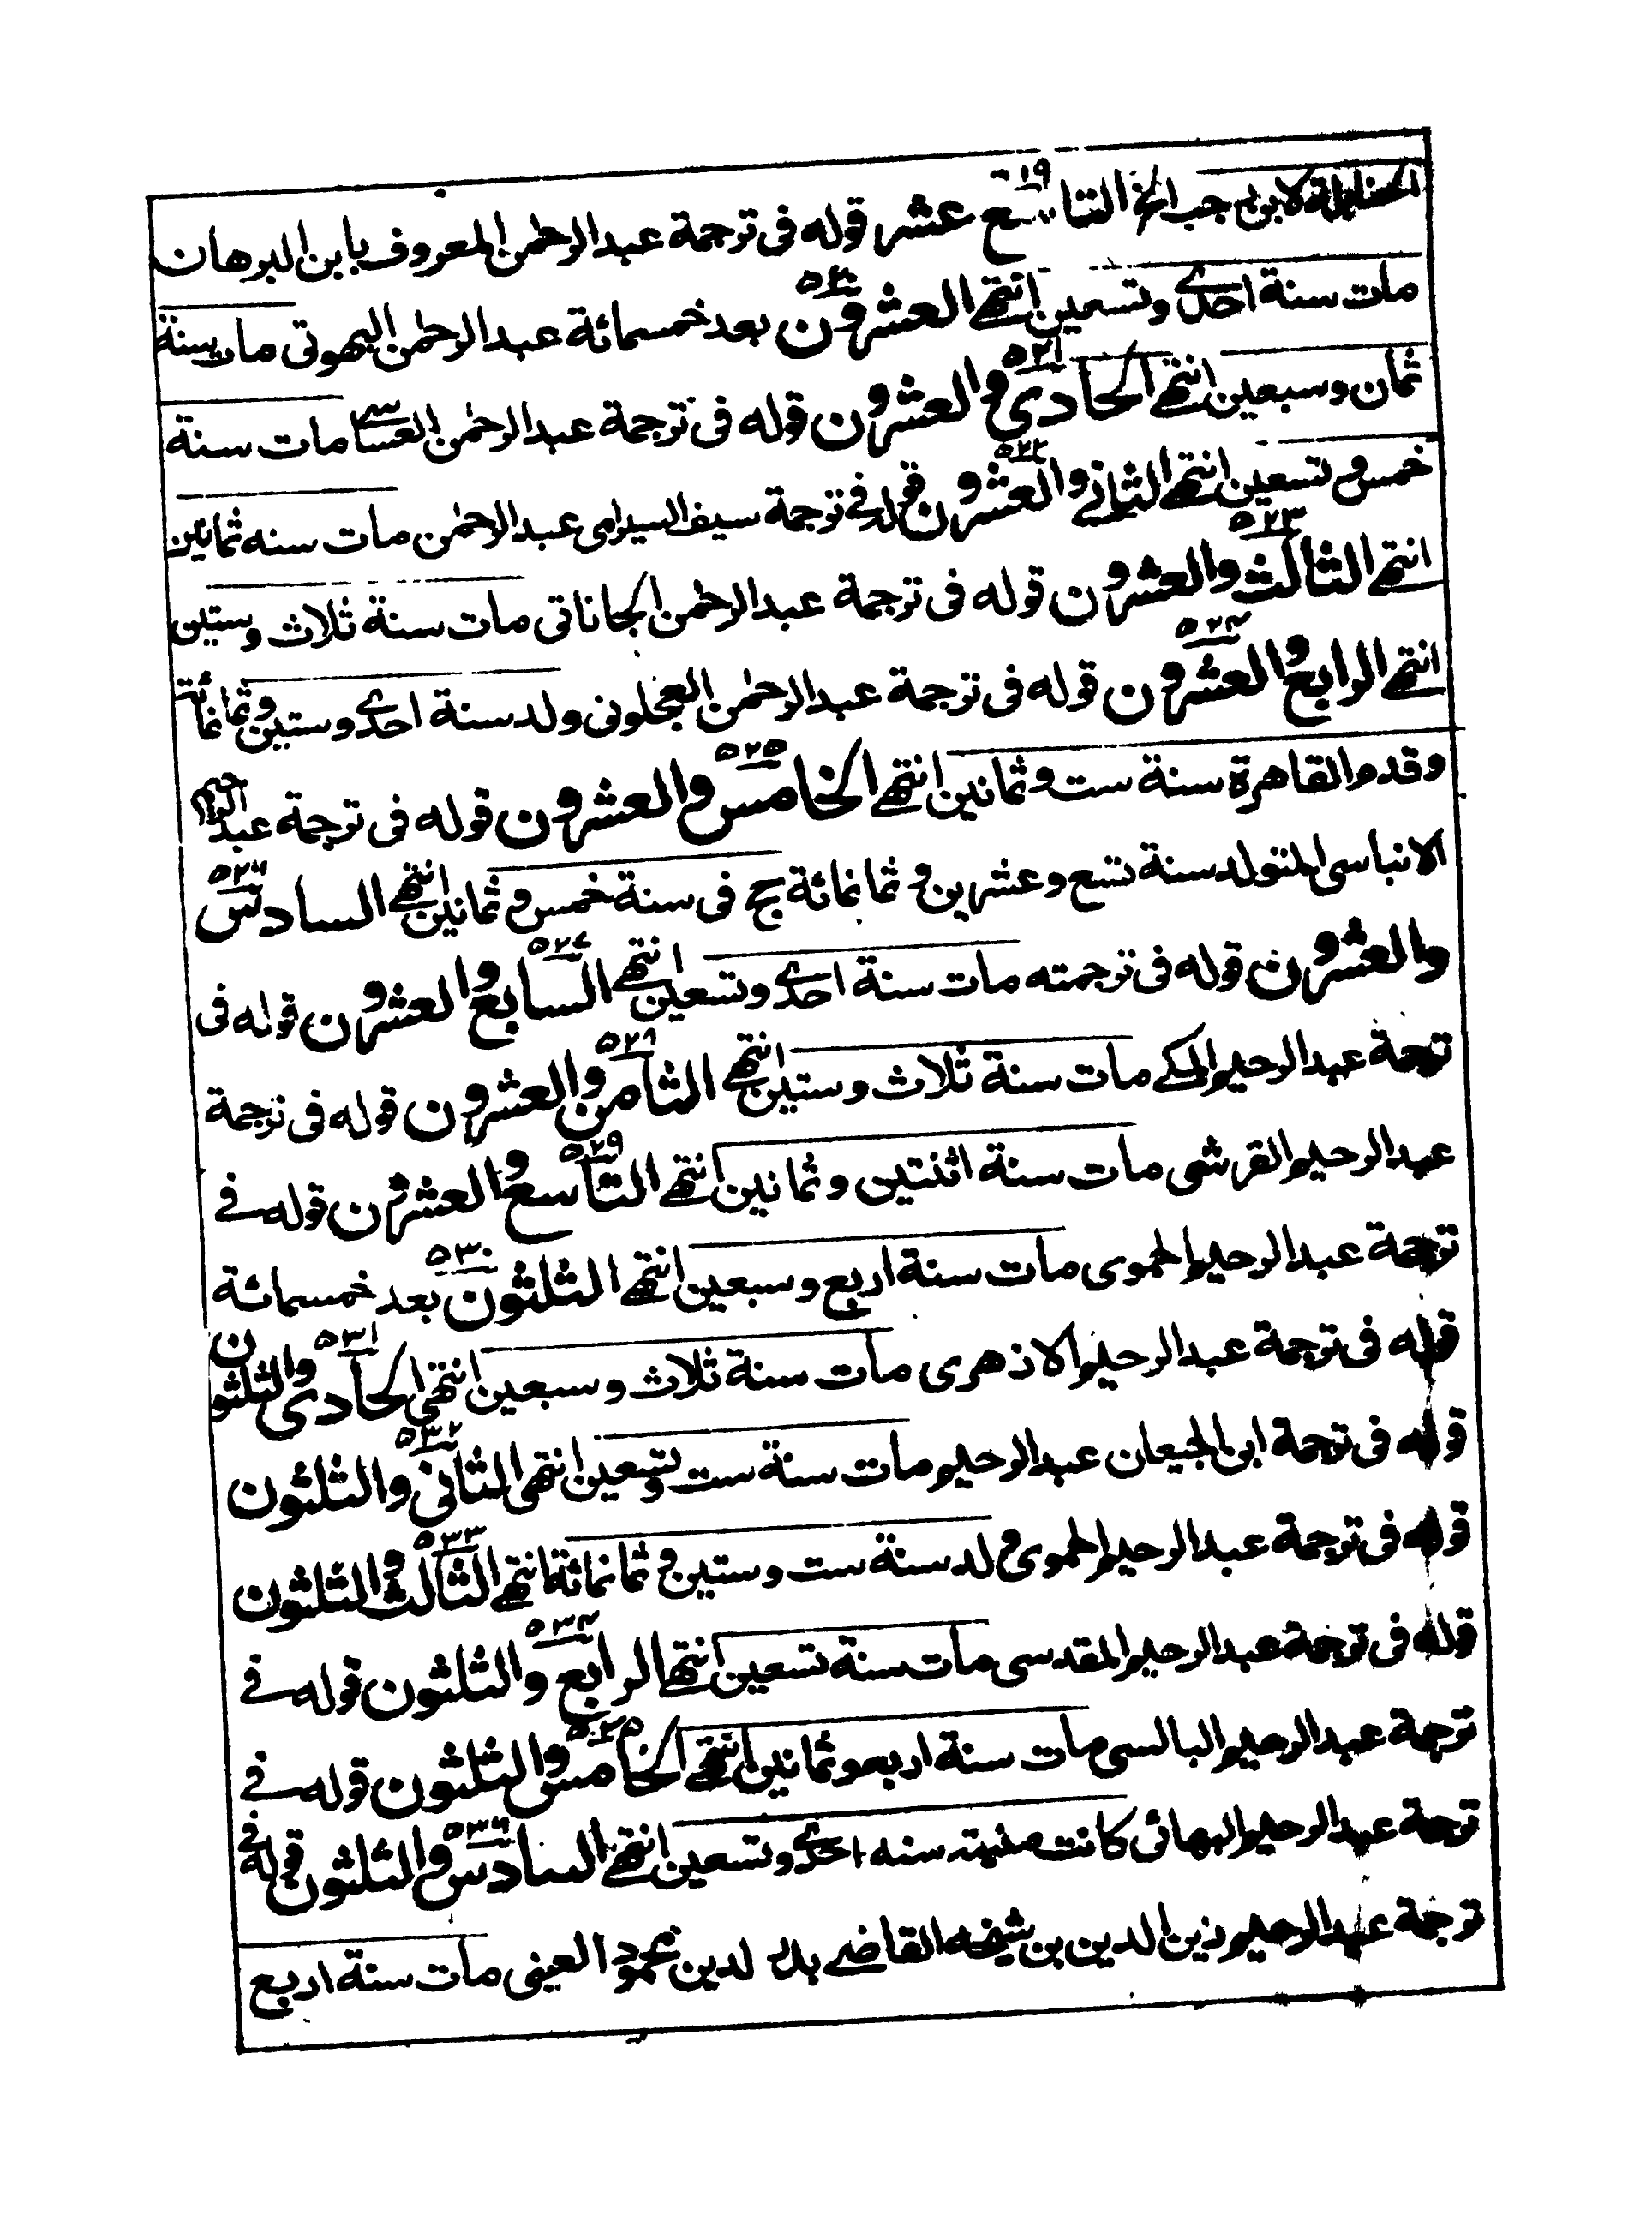 الحنابلة لابن رجب الخ التاسع عشر ٥١٩ قوله فى ترجمة عبد الرحمن المعروف بابن البرهان
مات سنة احدى وتسعين انتهى العشرون ٥٢٠ بعد خمسمائة عبد الرحمن البهوتى مات سنة
ثمان وسبعين انتهى الحادى والعشرون ٥٢١ قوله فى ترجمة عبد الرحمن مات سنة
خمس وتسعين انتهى الثانى والعشرون ٥٢٢ قوله فى ترجمة سيف السيرامى عبد الرحمن مات سنه ثمانين
انتهى الثالث والعشرون ٥٢٣ قوله فى ترجمة عبد الرحمن الجاناتى مات سنة ثلاث وستين
انتهى الرابع والعشرون ٥٢٤ قوله فى ترجمة عبد الرحمن العجلونى ولد سنة احدى وستين وثمانمائة
وقدم القاهرة سنة ست وثمانين انتهى الخامس والعشرون ٥٢٥ قوله فى ترجمة عبد الرحيم
الانباسى المتولد سنة تسع وعشرين وثمانمائة حج فى سنة خمس وثمانين انتهى السادس ٥٢٦
والعشرون قوله فى ترجمته مات سنة احدى وتسعين انتهى السابع والعشرون ٥٢٧ قوله فى
ترجمة عبد الرحيم المكى مات سنة ثلاث وستين انتهى الثامن والعشرون ٥٢٨ قوله فى ترجمة
عبد الرحيم القرشى مات سنة اثنتين وثمانين انتهى التاسع والعشرون ٥٢٩ قوله فى
ترجمة عبد الرحيم الحموى مات سنة اربع وسبعين انتهى الثلثون ٥٣٠ بعد خمسمائة
قوله فى ترجمة عبد الرحيم الازهرى مات سنة ثلاث وسبعين انتهى الحادى والثلثون ٥٣١
قوله فى ترجمة ابى الجيعان عبد الرحيم مات سنة ست وتسعين انتهى الثانى والثلثون ٥٣٢
قوله فى ترجمة عبد الرحيم الحموى ولد سنة ست وستين وثمانمائة انتهى الثالث والثلثون ٥٣٣
قوله فى ترجمة عبد الرحيم المقدسى مات سنة تسعين انتهى الرابع والثلثون ٥٣٤ قوله فى
ترجمة عبد الرحيم البالسى مات سنة اربع وثمانين انتهى الخامس والثلثون ٥٣٥ قوله فى
ترجمة عبد الرحيم البهائى كانت منيته سنه احدى وتسعين انتهى السادس والثلثون ٥٣٦ قوله فى
ترجمة عبد الرحيم زين الدين بن شيخه القاضى بدر الدين محمود العينى مات سنة اربع